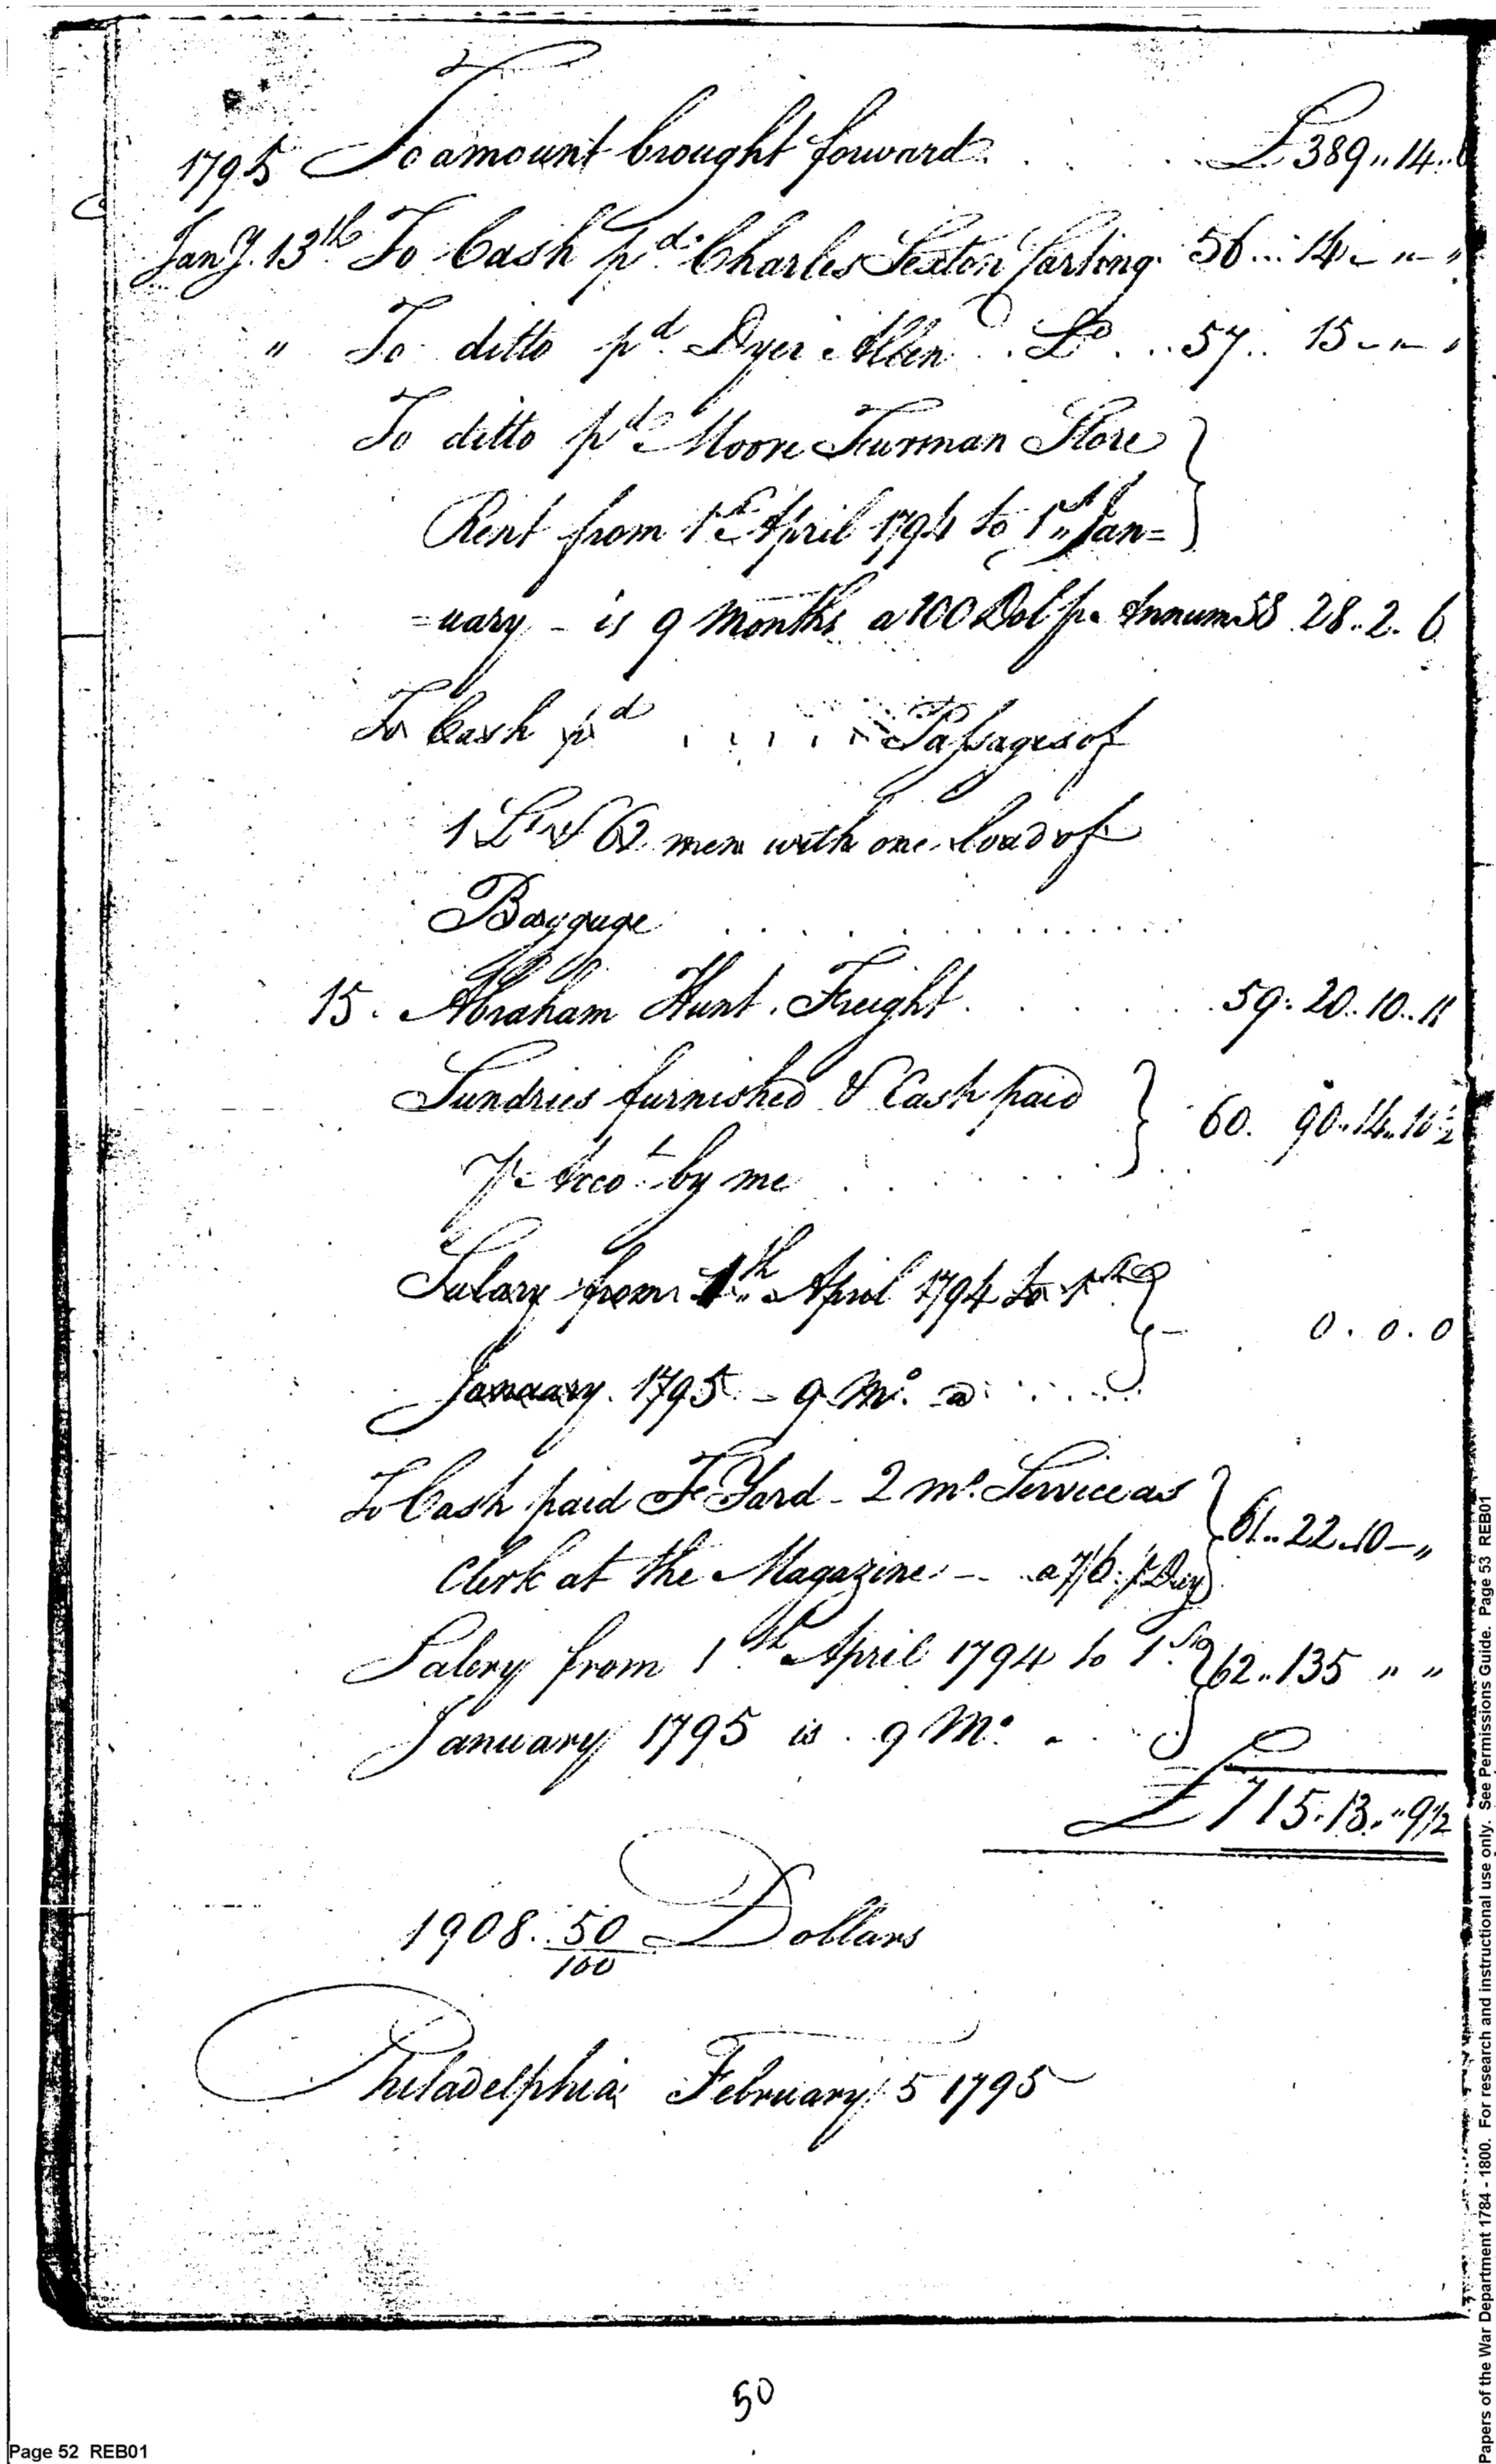 1795 To amount brought forward . . . . . £389..14..
Jany. 13th To Cash pd. Charles Sexton Carting. 56... 14 - " - "
" To ditto pd. Dyer Allen . Do . .. 57.. 15 - " - "
To ditto pd. Moore Furman Store
Rent from 1st April 1794 to 1st Jan=
=uary - is 9 Months a 100 Dol pr. Annum 58 28..2. 6
To Cash pd . . . . . Passages of
1 Lt & 62 men with one load of
Baggage . . . . . . . . . . . . . .
15. Abraham Hunt. Freight . . . . . . 59. 20..10..11
Sundries furnished & Cash paid
pr. Acco.t by me . . . . . . 60. 90..14..10½
Salary from 1th April 1794 to 1st
January. 1795 - 9 Mo. a . . . . - 0 . 0 . 0
To Cash paid F Yard - 2 mo. Service as
Clerk at the Magazine - a 7/6 pr Day 61..22..10-"
Salery from 1th April 1794 to 1st 62..135 " "
January 1795 is . 9 Mo. - . .
£715.13.."9½
1908..50/100 Dollars
Philadelphia February 5 1795
50
Page 52 REB01
Papers of the War Department 1784 - 1800. For research and instructional use only. See Permissions Guide. Page 53 REB01